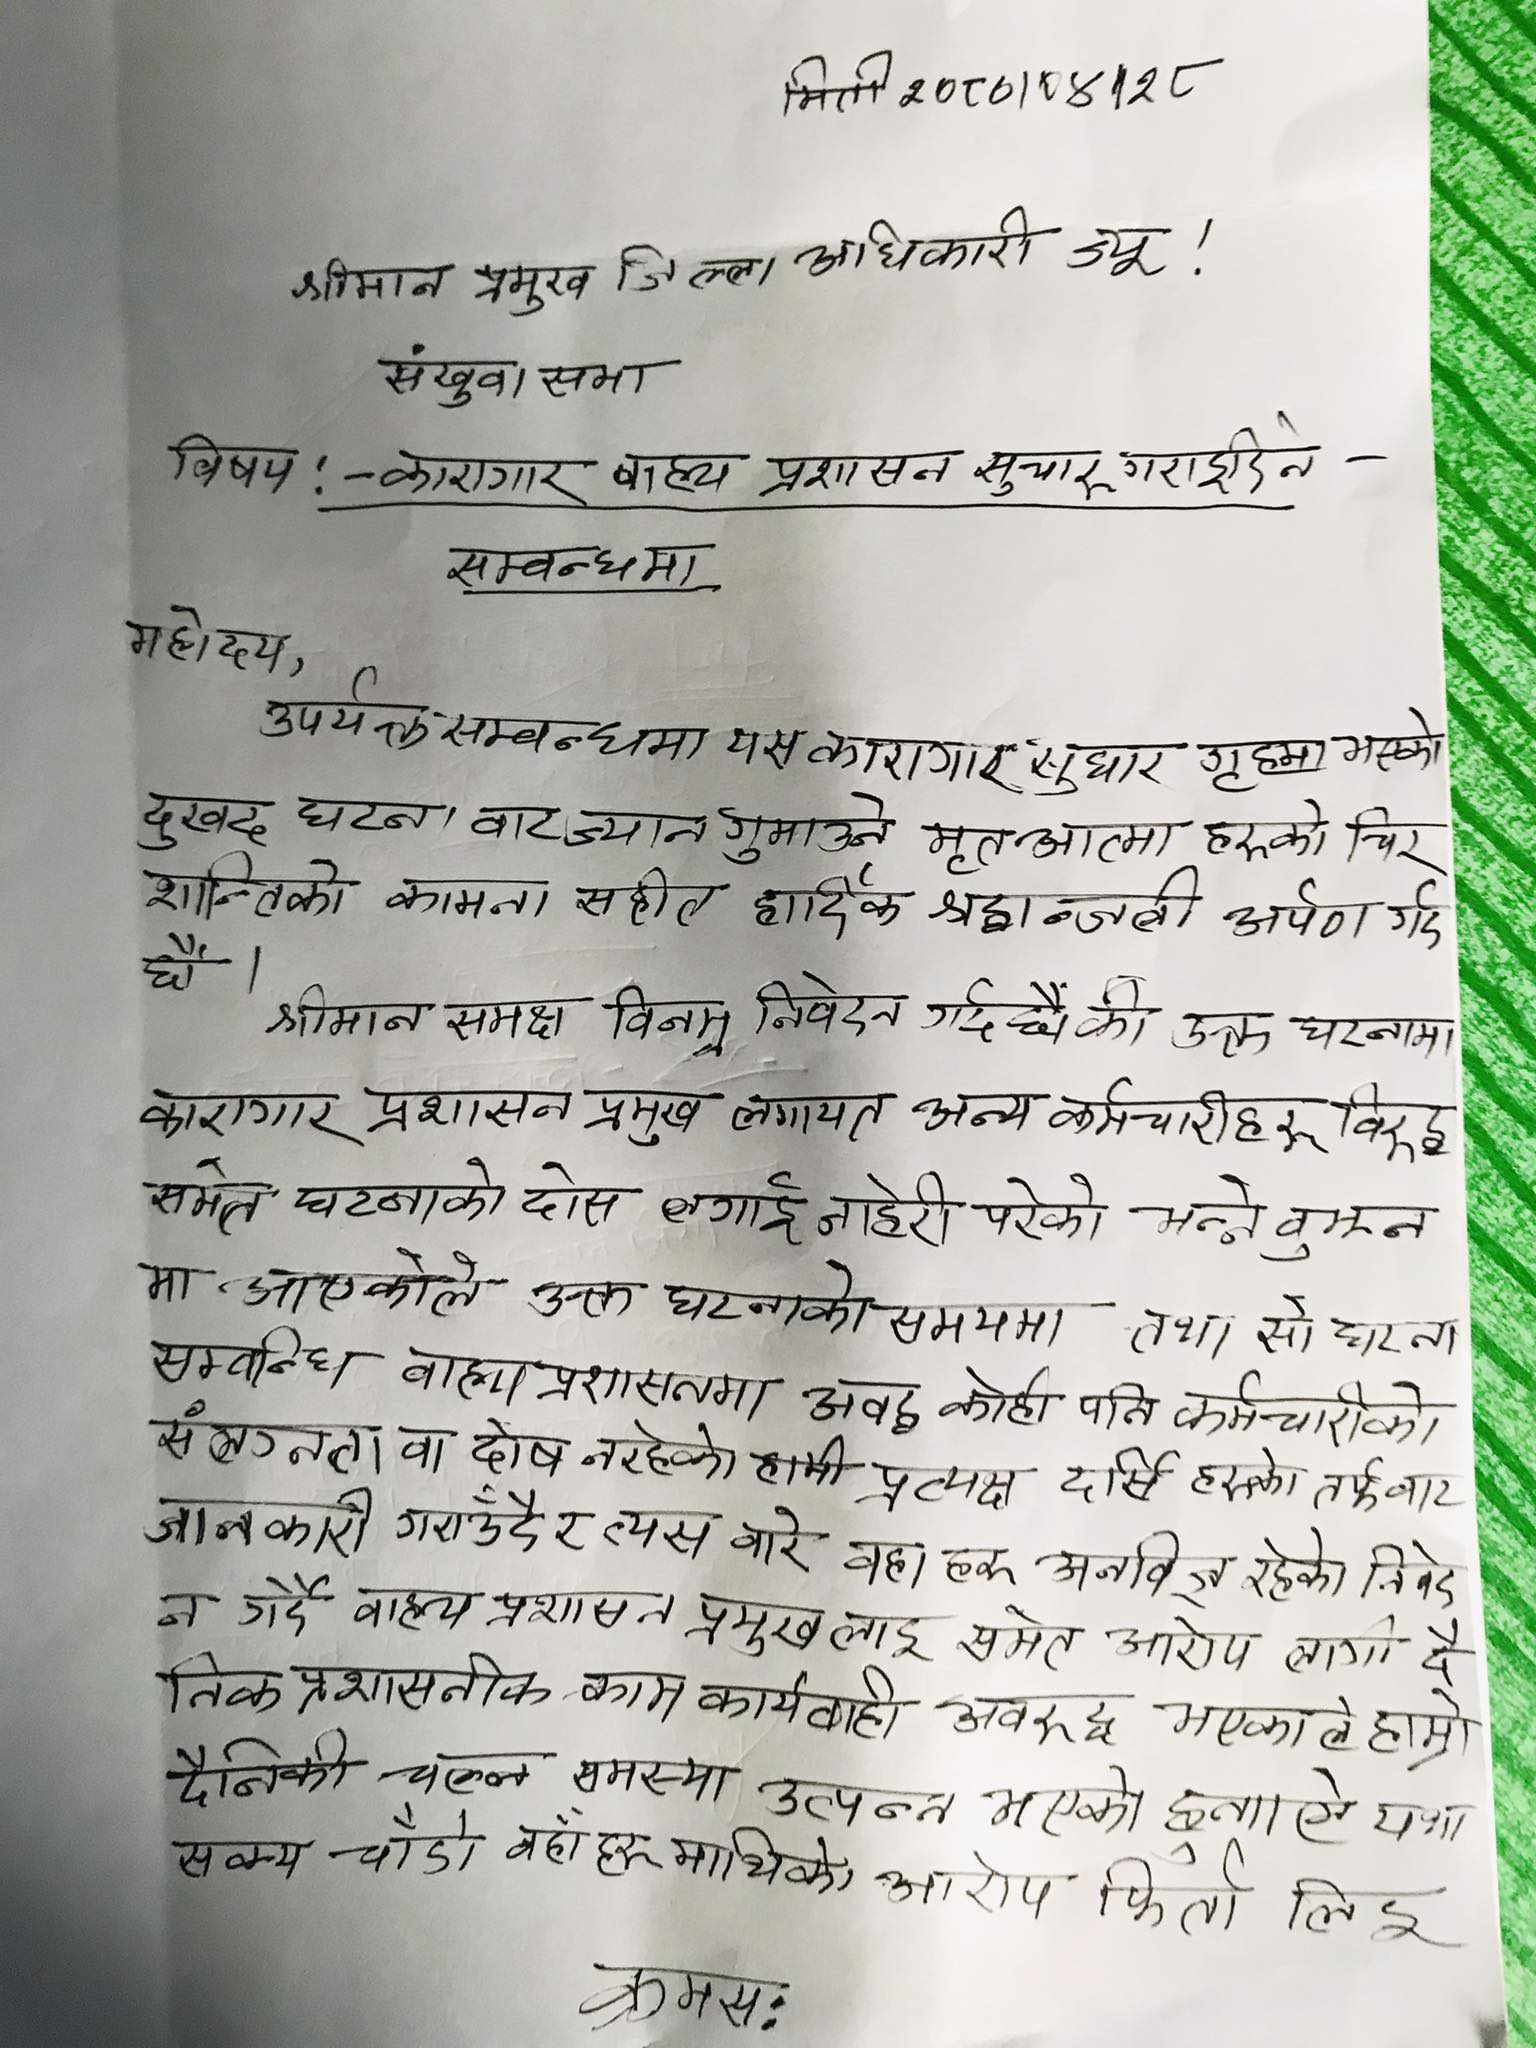 मिती २०८०।०४।२८
श्रीमान प्रमुख जिल्ला अधिकारी ज्यू !
संखुवासभा
विषय :- कारागार वाह्य प्रशासन सुचारू गराईदिने -
सम्वन्धमा
महोदय,
उपर्यक्त सम्वन्धमा यस कारागार सुधार गृहमा भएको
दुखद घटना वाट ज्यान गुमाउने मृत आत्मा हरुको चिर
शान्तिको कामना सहीत हार्दिक श्रद्धान्जली अर्पण गर्द
छौं ।
श्रीमान समक्ष विनम्र निवेदन गर्दछौं की उक्त घटनामा
कारागार प्रशासन प्रमुख लगायत अन्य कर्मचारीहरू विरुद्ध
समेत घटनाको दोस लगाई नाहेरी परेको भन्ने वुझन
मा आएकोले उक्त घटनाको समयमा तथा सो घटना
सम्वन्धि वाह्य प्रशासनमा अवद्ध कोही पनि कर्मचारीको
संलग्नता वा दोष नरहेको हामी प्रत्यक्ष दर्सि हरुको तर्फवाट
जानकारी गराउँदै र त्यस वारे वहा हरु अनविज्ञ रहेको निवेद
न गर्दै वाह्य प्रशासन प्रमुखलाइ समेत आरोप लागी दै
निक प्रशासनीक काम कार्यवाही अवरुद्ध भएकाले हाम्रो
दैनिकी चल्न समस्या उत्पन्न भएको हुनाले यथा
सक्य चाँडो वहाँहरू माथिको आरोप फिर्ता लिइ
क्रमस: